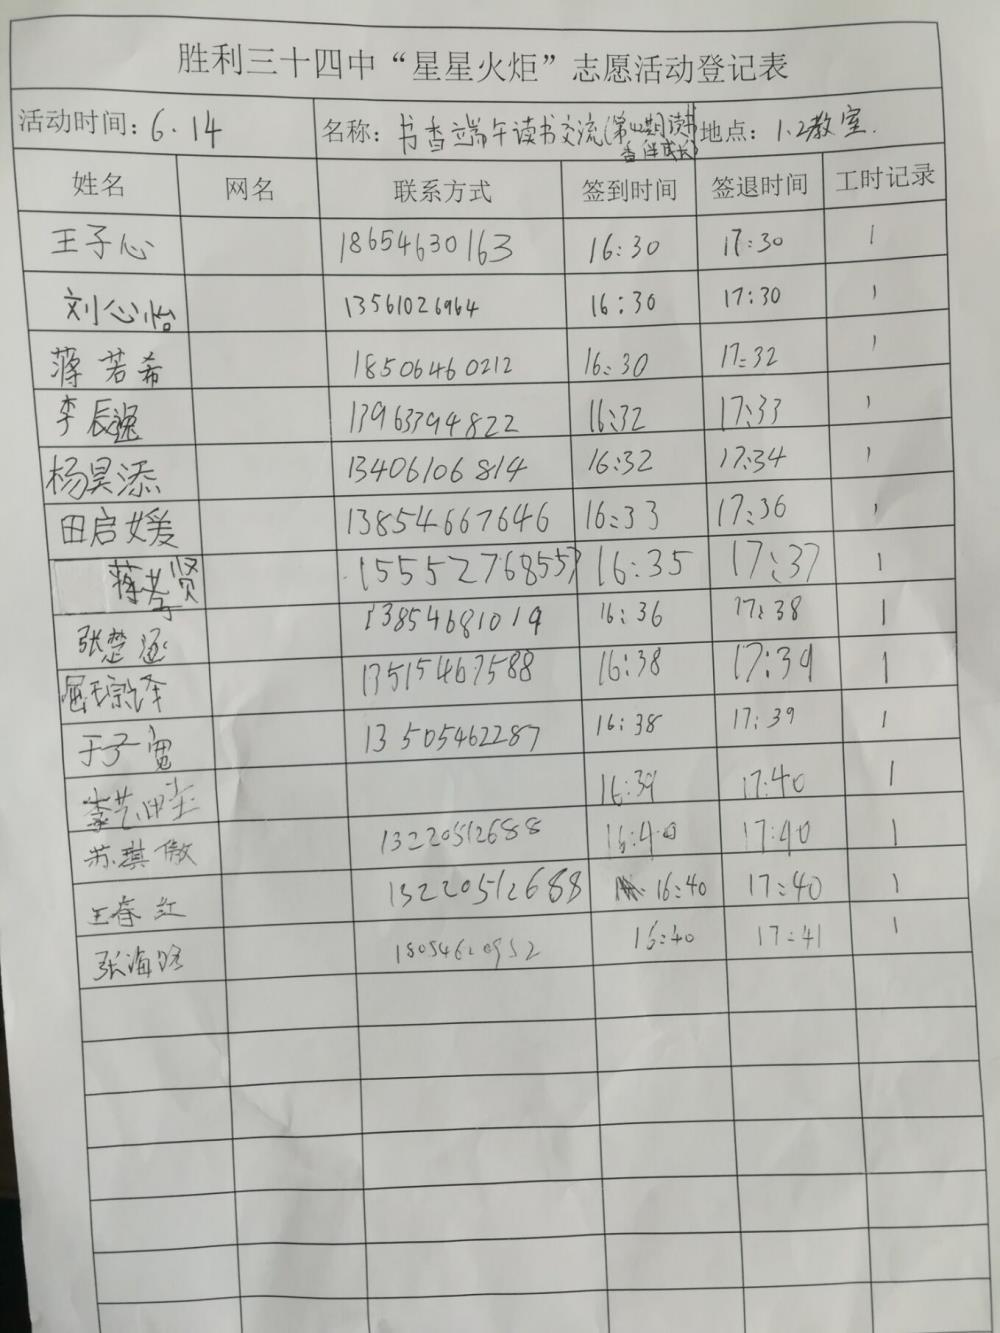 胜利三十四中“星星火炬”志愿活动登记表
活动时间：6.14 名称：书香端午读书交流(第四期读书香伴成长) 地点：1.2教室.
姓名 网名 联系方式 签到时间 签退时间 工时记录
王子心 18654630163 16:30 17:30 1
刘心怡 13561026964 16:30 17:30 1
蒋若希 18506460212 16:30 17:32 1
李辰逸 13963394822 16:32 17:33 1
杨昊添 13406106814 16:32 17:34 1
田启媛 13854667646 16:33 17:36 1
蒋孝贤 15552768557 16:35 17:37 1
张楚涵 13854681019 16:36 17:38 1
屈琮泽 13515467588 16:38 17:39 1
于子宽 13505462287 16:38 17:39 1
李艺 16:39 17:40 1
苏琪傲 13220512688 16:40 17:40 1
王春红 13220512688 16:40 17:40 1
张海路 18054620952 16:40 17:41 1